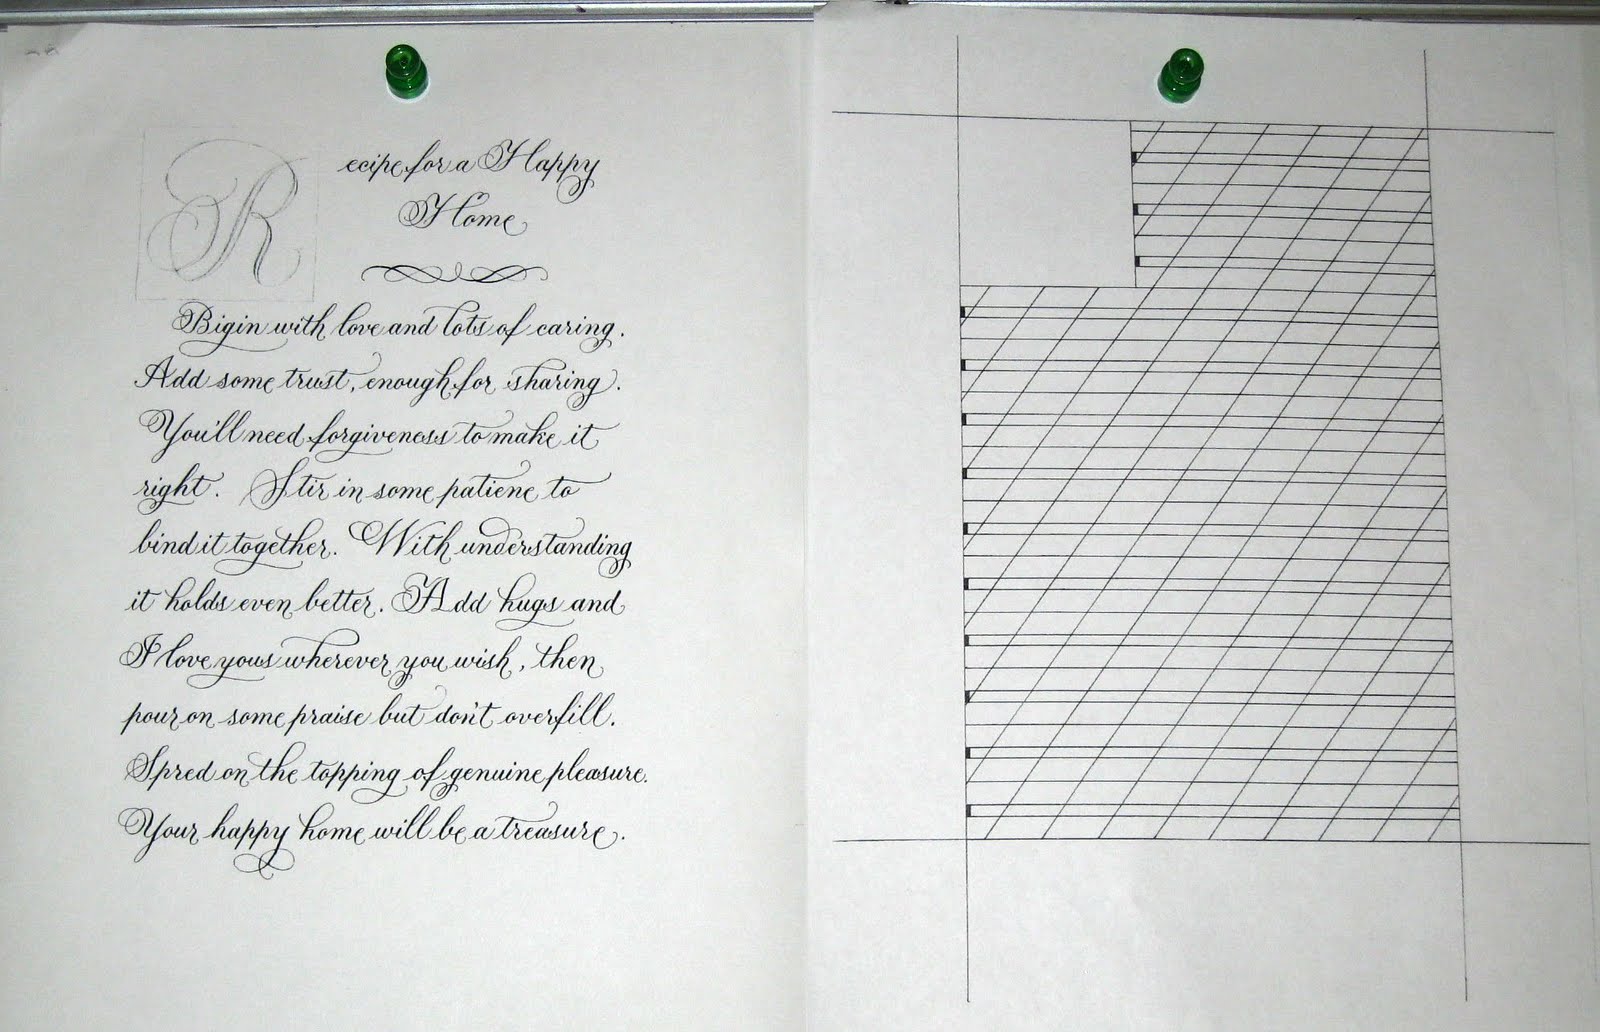 Recipe for a Happy
Home
Bigin with love and lots of caring.
Add some trust, enough for sharing.
You'll need forgiveness to make it
right. Stir in some patiene to
bind it together. With understanding
it holds even better. Add hugs and
I love yous wherever you wish, then
pour on some praise but don't overfill.
Spred on the topping of genuine pleasure.
Your happy home will be a treasure.